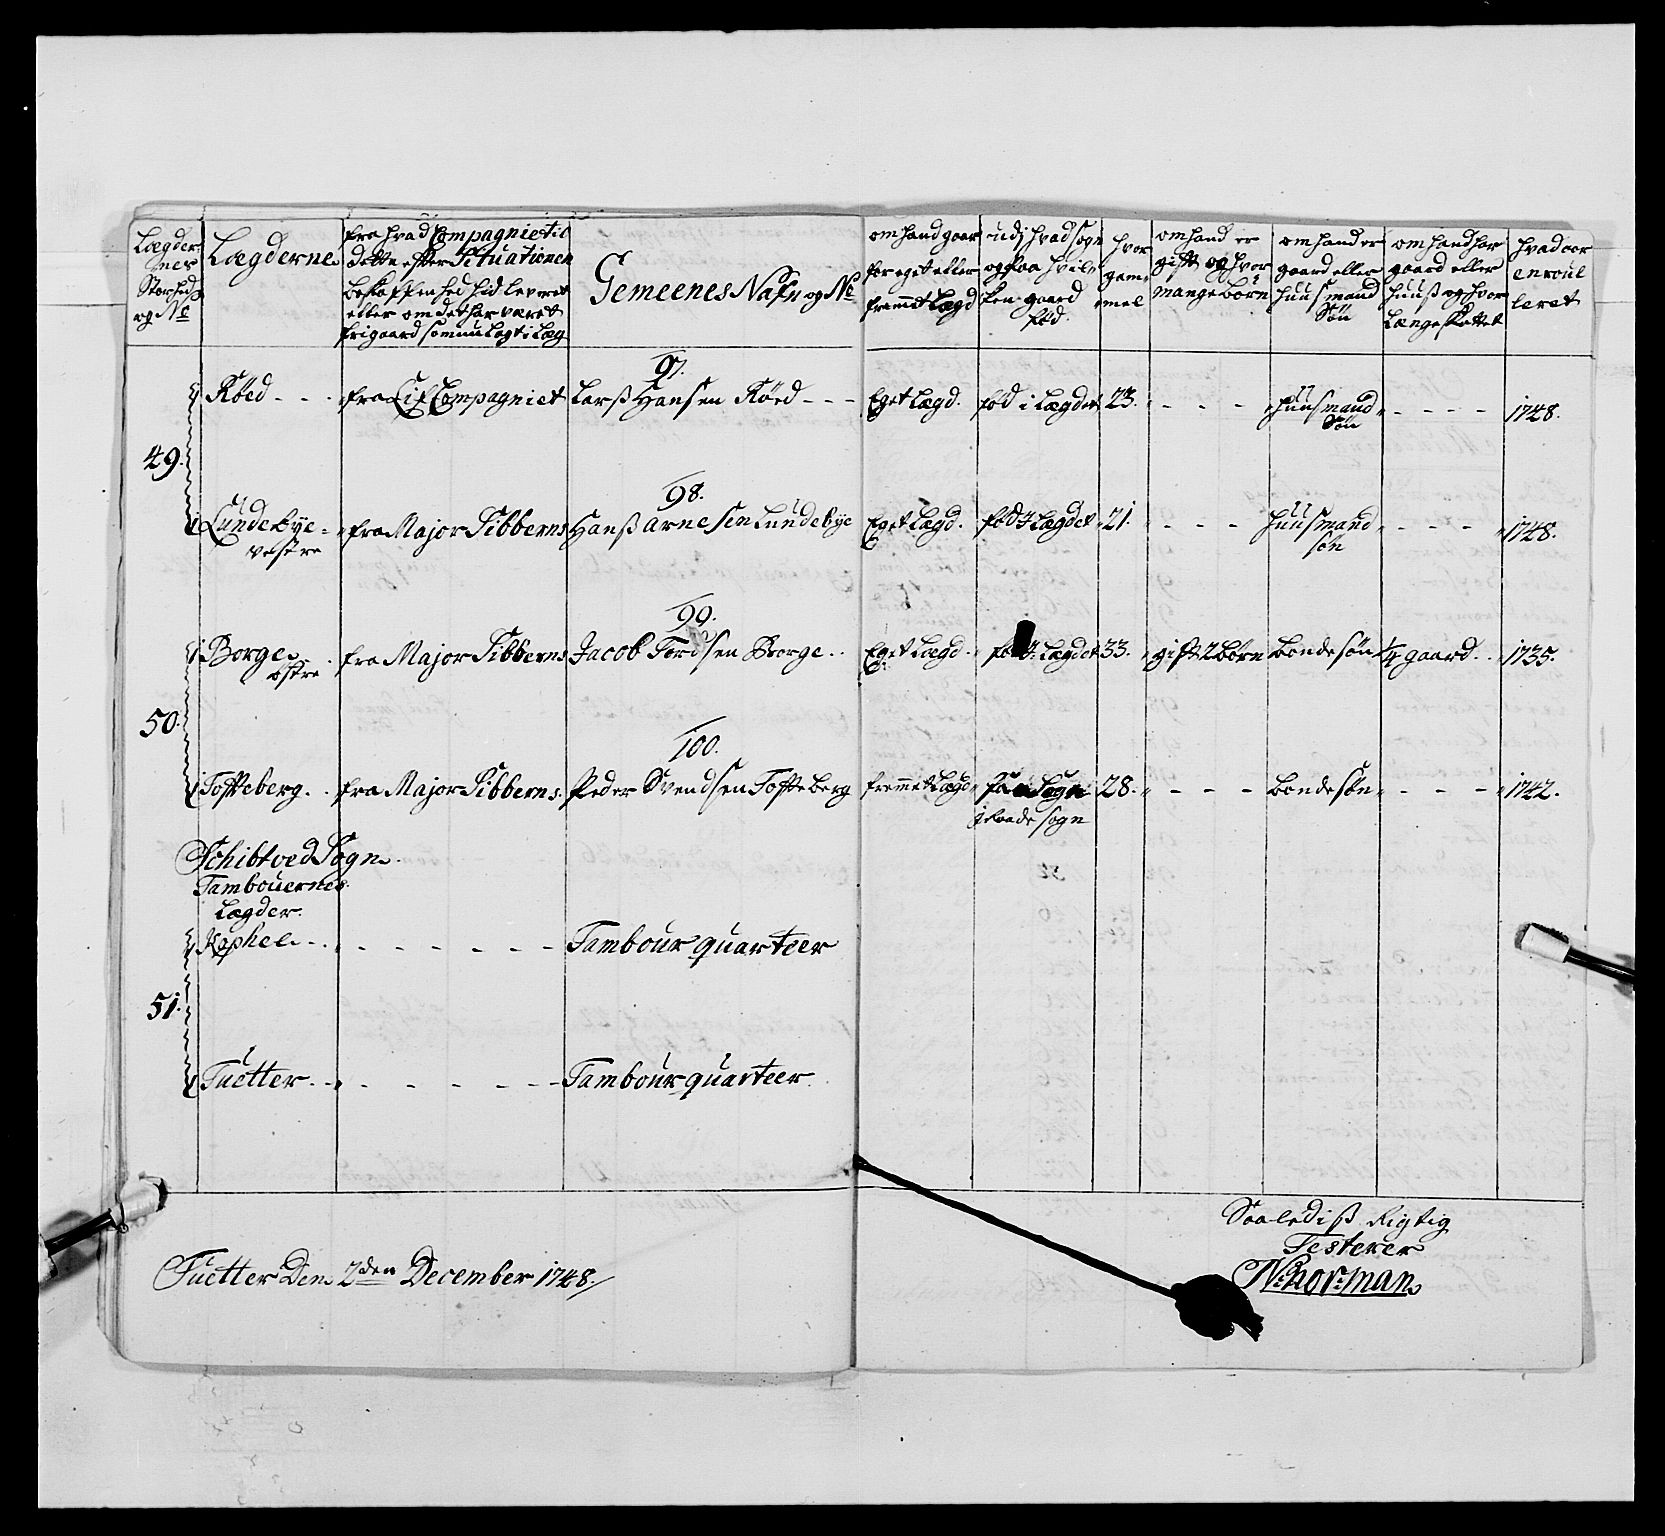 Lægder
nes
Storhed
og No
Lægderne
fra hvad Compagnie til
dette efter Situationen
beskaffenhed hid leveret
eller om det har været
frigaard som nu lagt i Læg
Gemeenes Nafn og No
om hand gaar
for eget eller
fremmet Lægd
udj hvad sogn
og paa hvil
ken gaard
fød.
hvor
gam
mel
om hand er
gift og hvor
mange børn
om hand er
gaard eller
huusmand
Søn
om hand har
gaard eller
huuß og hvor
Længe skattet
hvad aar
enroul
leret
49.
Röed - - - fra Lif Compagniet
97.
Larß Hansen Röed - - - Eget Lægd. fød i Lægdet 23. - - - huusmand - - - - 1748.
Søn
98.
Lundebÿe fra Major Sibberns Hanß Arnesen Lundebÿe Eget Lægd. fød i Lægdet 21. - - - huusmand - - - - 1748.
vestre
søn
50.
99.
Borge fra Major Sibberns Jacob Tordsen Borge Eget Lægd. fød i Lægdet 33. gift 2 børn bondesøn 1/4 gaard 1735.
østre
100.
Tofteberg fra Major Sibberns Peder Svendsen Tofteberg fremmet Lægd Sogn 28. - - - bondesøn - - - 1742.
i Raade sogn
Schibtved Sogn
Tambouernes
Lægder.
51.
Kaphel - - - - - - - - Tambour quarteer
Tuetter - - - - - - - - Tambour quarteer
Tuetter Den 2den December 1748./
Saaledis Rigtig
Testerer
N: Norman